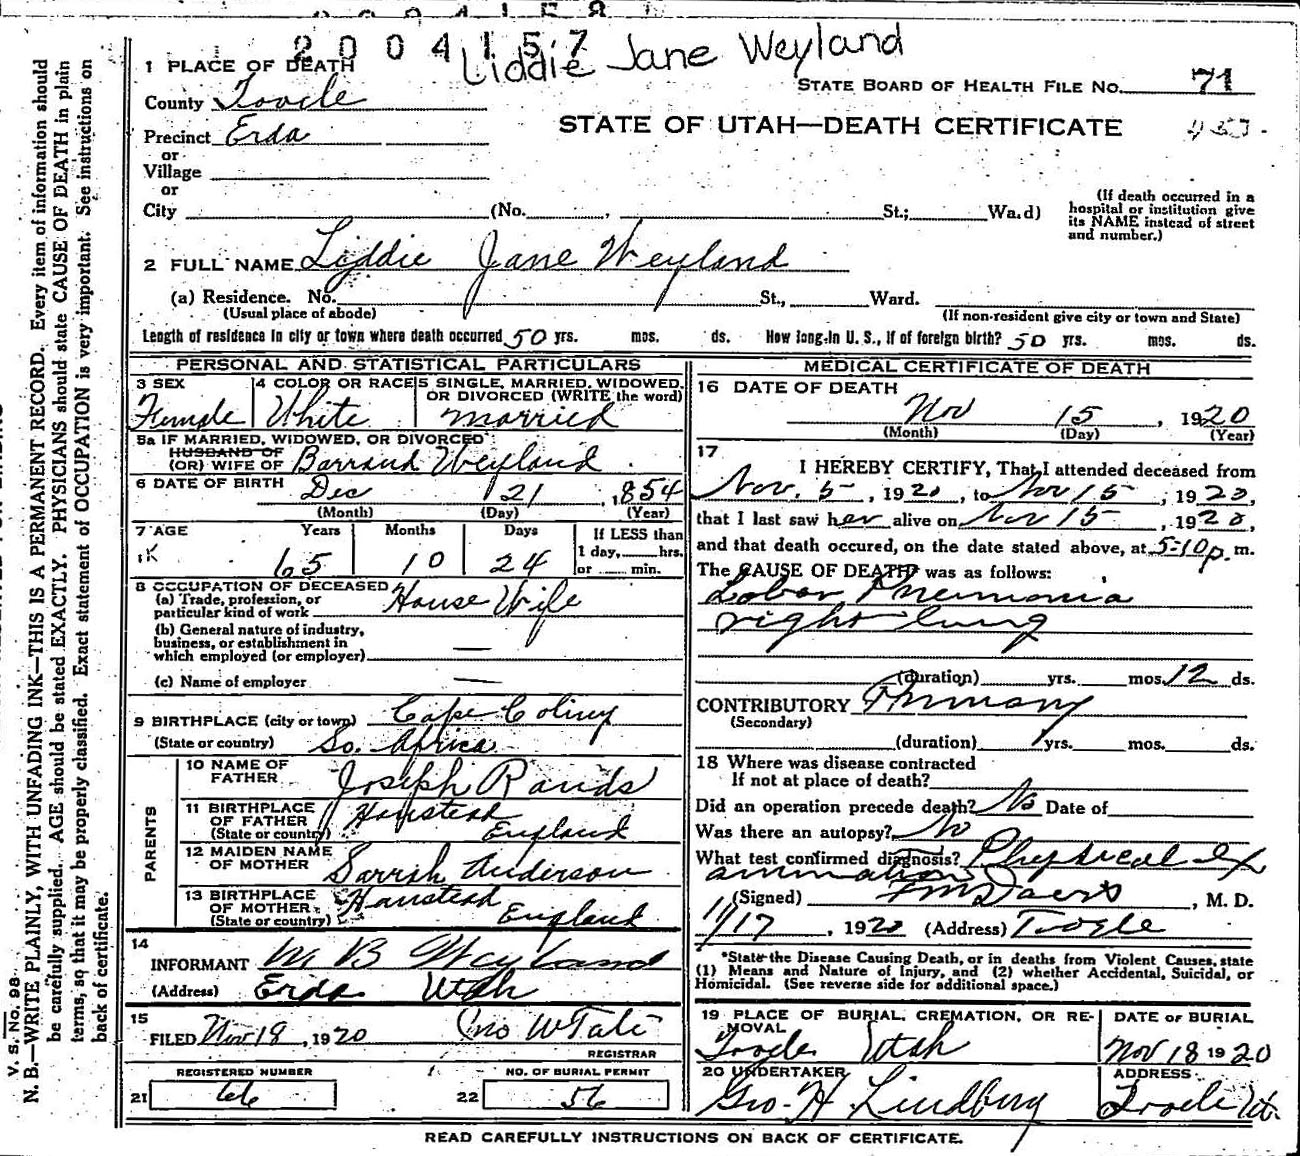 2004157
Liddie Jane Weyland
1 PLACE OF DEATH
STATE BOARD OF HEALTH FILE No. 71
County Tooele
STATE OF UTAH—DEATH CERTIFICATE
Precinct Erda
or
Village
or
City (No. , St.; Ward)
(If death occurred in a
hospital or institution give
its NAME instead of street
and number.)
2 FULL NAME Liddie Jane Weyland
(a) Residence. No. St., Ward.
(Usual place of abode) (If non-resident give city or town and State)
Length of residence in city or town where death occurred 50 yrs. mos. ds. How long in U. S., if of foreign birth? 50 yrs. mos. ds.
PERSONAL AND STATISTICAL PARTICULARS
3 SEX 4 COLOR OR RACE 5 SINGLE, MARRIED, WIDOWED,
OR DIVORCED (WRITE the word)
Female White married
5a IF MARRIED, WIDOWED, OR DIVORCED
HUSBAND OF
(OR) WIFE OF Barrand Weyland
6 DATE OF BIRTH Dec 21 , 1854
(Month) (Day) (Year)
7 AGE Years Months Days If LESS than
1 day, hrs.
or min.
65 10 24
8 OCCUPATION OF DECEASED
(a) Trade, profession, or
particular kind of work House Wife
(b) General nature of industry,
business, or establishment in
which employed (or employer) —
(c) Name of employer —
9 BIRTHPLACE (city or town) Cape Coliny
(State or country) So. Africa
PARENTS
10 NAME OF
FATHER Joseph Rands
11 BIRTHPLACE
OF FATHER Hamstead
(State or country) England
12 MAIDEN NAME
OF MOTHER Sarrah Anderson
13 BIRTHPLACE
OF MOTHER Hamstead
(State or country) England
14
INFORMANT M B Weyland
(Address) Erda Utah
15
FILED Nov 18, 1920 Jno W Tate
REGISTRAR
REGISTERED NUMBER NO. OF BURIAL PERMIT
21 66 22 56
MEDICAL CERTIFICATE OF DEATH
16 DATE OF DEATH
Nov 15 , 1920
(Month) (Day) (Year)
17
I HEREBY CERTIFY, That I attended deceased from
Nov. 5, 1920, to Nov 15, 1920,
that I last saw her alive on Nov 15, 1920,
and that death occured, on the date stated above, at 5-10 p. m.
The CAUSE OF DEATH was as follows:
Lobar Pneumonia
right lung
(duration) yrs. mos. 12 ds.
CONTRIBUTORY
(Secondary)
(duration) yrs. mos. ds.
18 Where was disease contracted
If not at place of death?
Did an operation precede death? No Date of
Was there an autopsy? No
What test confirmed diagnosis? Physical Ex
ammation
(Signed) , M. D.
11/17, 1920 (Address) Tooele
*State the Disease Causing Death, or in deaths from Violent Causes, state
(1) Means and Nature of Injury, and (2) whether Accidental, Suicidal, or
Homicidal. (See reverse side for additional space.)
19 PLACE OF BURIAL, CREMATION, OR RE-
MOVAL
Tooele Utah
DATE OF BURIAL
Nov 18 1920
20 UNDERTAKER
Geo. H Lindberg
ADDRESS
Tooele Ut.
READ CAREFULLY INSTRUCTIONS ON BACK OF CERTIFICATE.
V. S. No. 98
N. B.—WRITE PLAINLY, WITH UNFADING INK—THIS IS A PERMANENT RECORD. Every item of information should
be carefully supplied. AGE should be stated EXACTLY. PHYSICIANS should state CAUSE OF DEATH in plain
terms, so that it may be properly classified. Exact statement of OCCUPATION is very important. See instructions on
back of certificate.